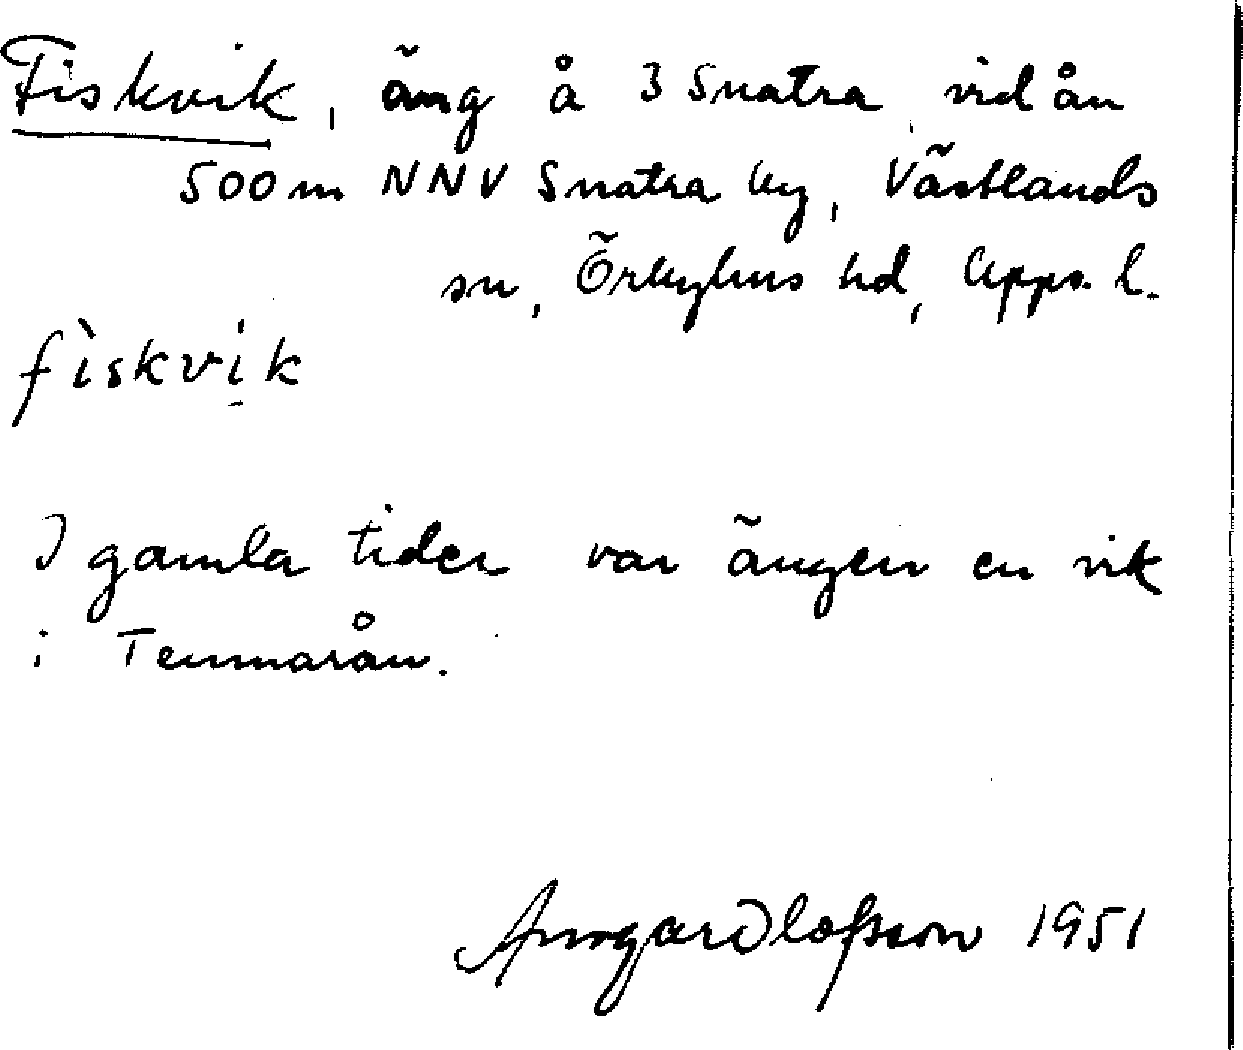 Fiskvik, äng å 3 Snatra, vid ån
500 m NNV Snatra by, Västlands
sn, Örbyhus hd, Upps. l.
fìskvi̠k
I gamla tider var ängen en vik
i Temnarån.
Olofsson 1951